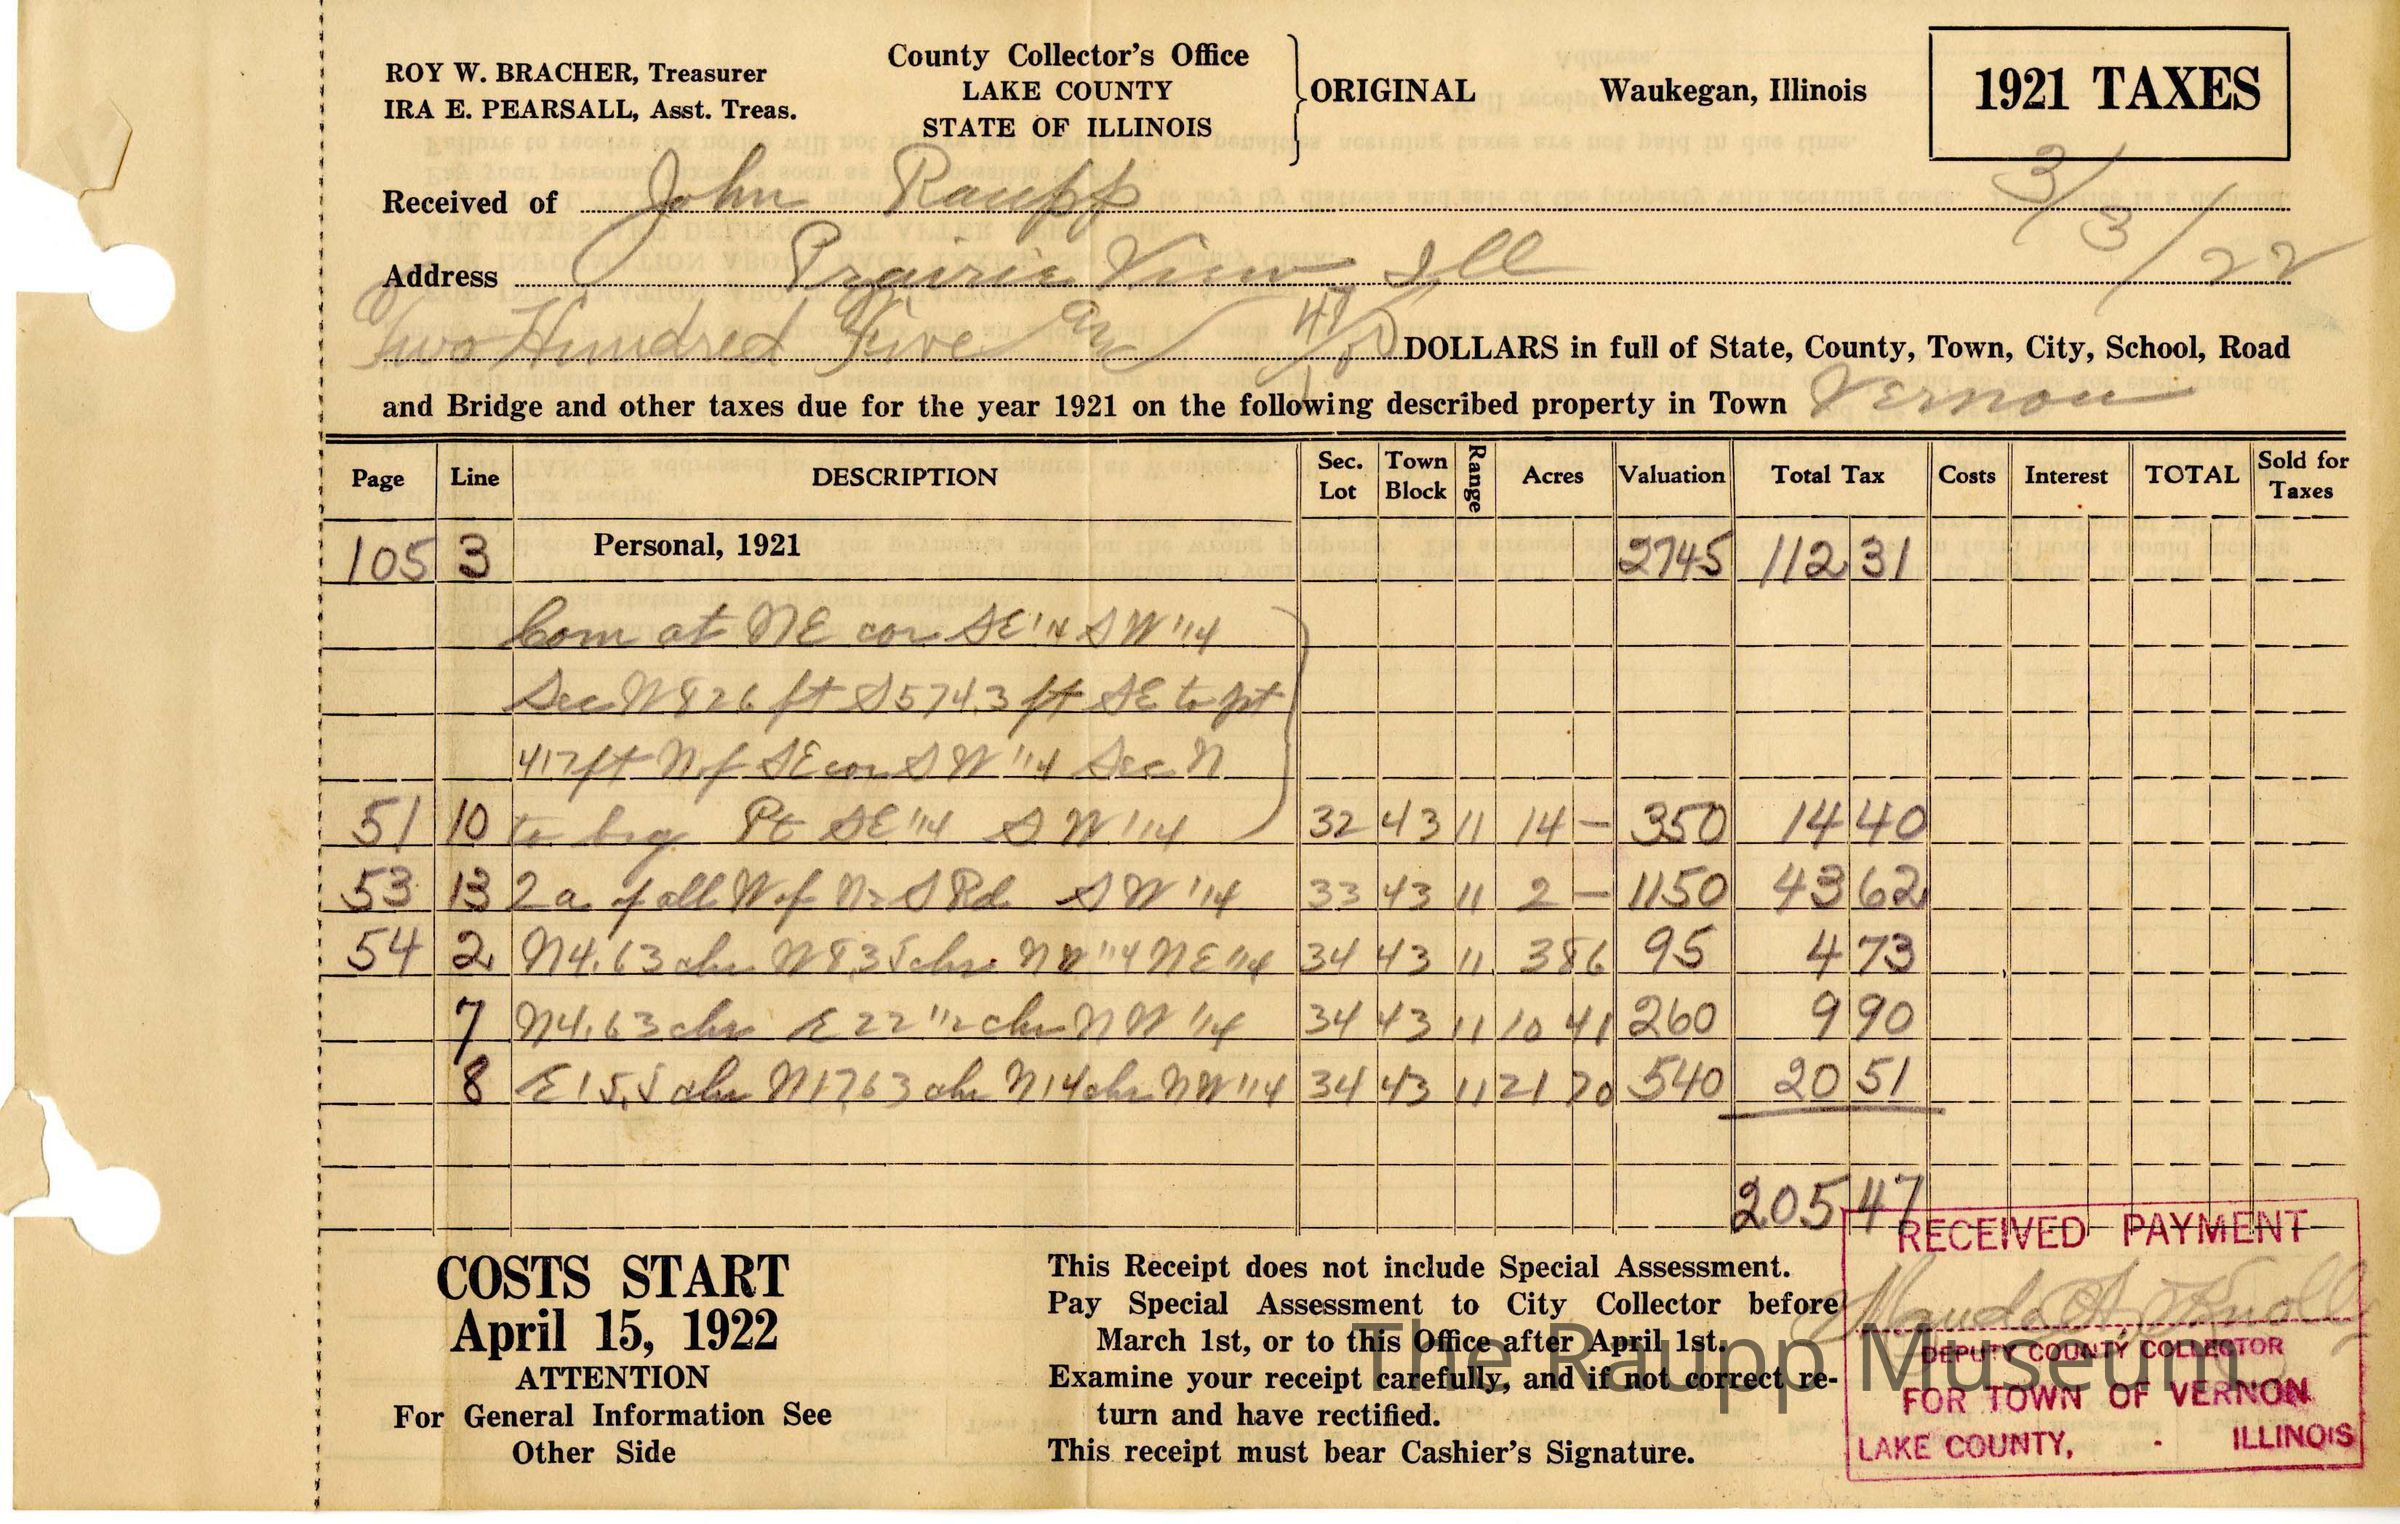 ROY W. BRACHER, Treasurer
IRA E. PEARSALL, Asst. Treas.
County Collector's Office
LAKE COUNTY
STATE OF ILLINOIS
ORIGINAL
Waukegan, Illinois
1921 TAXES
3/3/22
Received of John Raupp
Address Prairie View Ill
Two Hundred Five and 47/00 DOLLARS in full of State, County, Town, City, School, Road
and Bridge and other taxes due for the year 1921 on the following described property in Town Vernon
Page Line DESCRIPTION Sec. Lot Town Block Range Acres Valuation Total Tax Costs Interest TOTAL Sold for Taxes
105 3 Personal, 1921 2745 112 31
Com at NE cor SE 1/4 SW 1/4
Sec W 826 ft S 574.3 ft SE to pt
417 ft N of SE cor SW 1/4 Sec N
51 10 to beg Pt SE 1/4 SW 1/4 32 43 11 14 — 350 14 40
53 13 2 a of all W of N & S Rd SW 1/4 33 43 11 2 — 1150 43 62
54 2 N 4.63 chs W 8.35 chs NW 1/4 NE 1/4 34 43 11 3 86 95 4 73
7 N 4.63 chs E 22 1/2 chs NW 1/4 34 43 11 10 41 260 9 90
8 E 15.5 chs N 17.63 chs N 14 chs NW 1/4 34 43 11 21 70 540 20 51
205 47
COSTS START
April 15, 1922
ATTENTION
For General Information See
Other Side
This Receipt does not include Special Assessment.
Pay Special Assessment to City Collector before
March 1st, or to this Office after April 1st.
Examine your receipt carefully, and if not correct re-
turn and have rectified.
This receipt must bear Cashier's Signature.
RECEIVED PAYMENT
Maude A. Knolly
DEPUTY COUNTY COLLECTOR
FOR TOWN OF VERNON
LAKE COUNTY, - ILLINOIS
The Raupp Museum